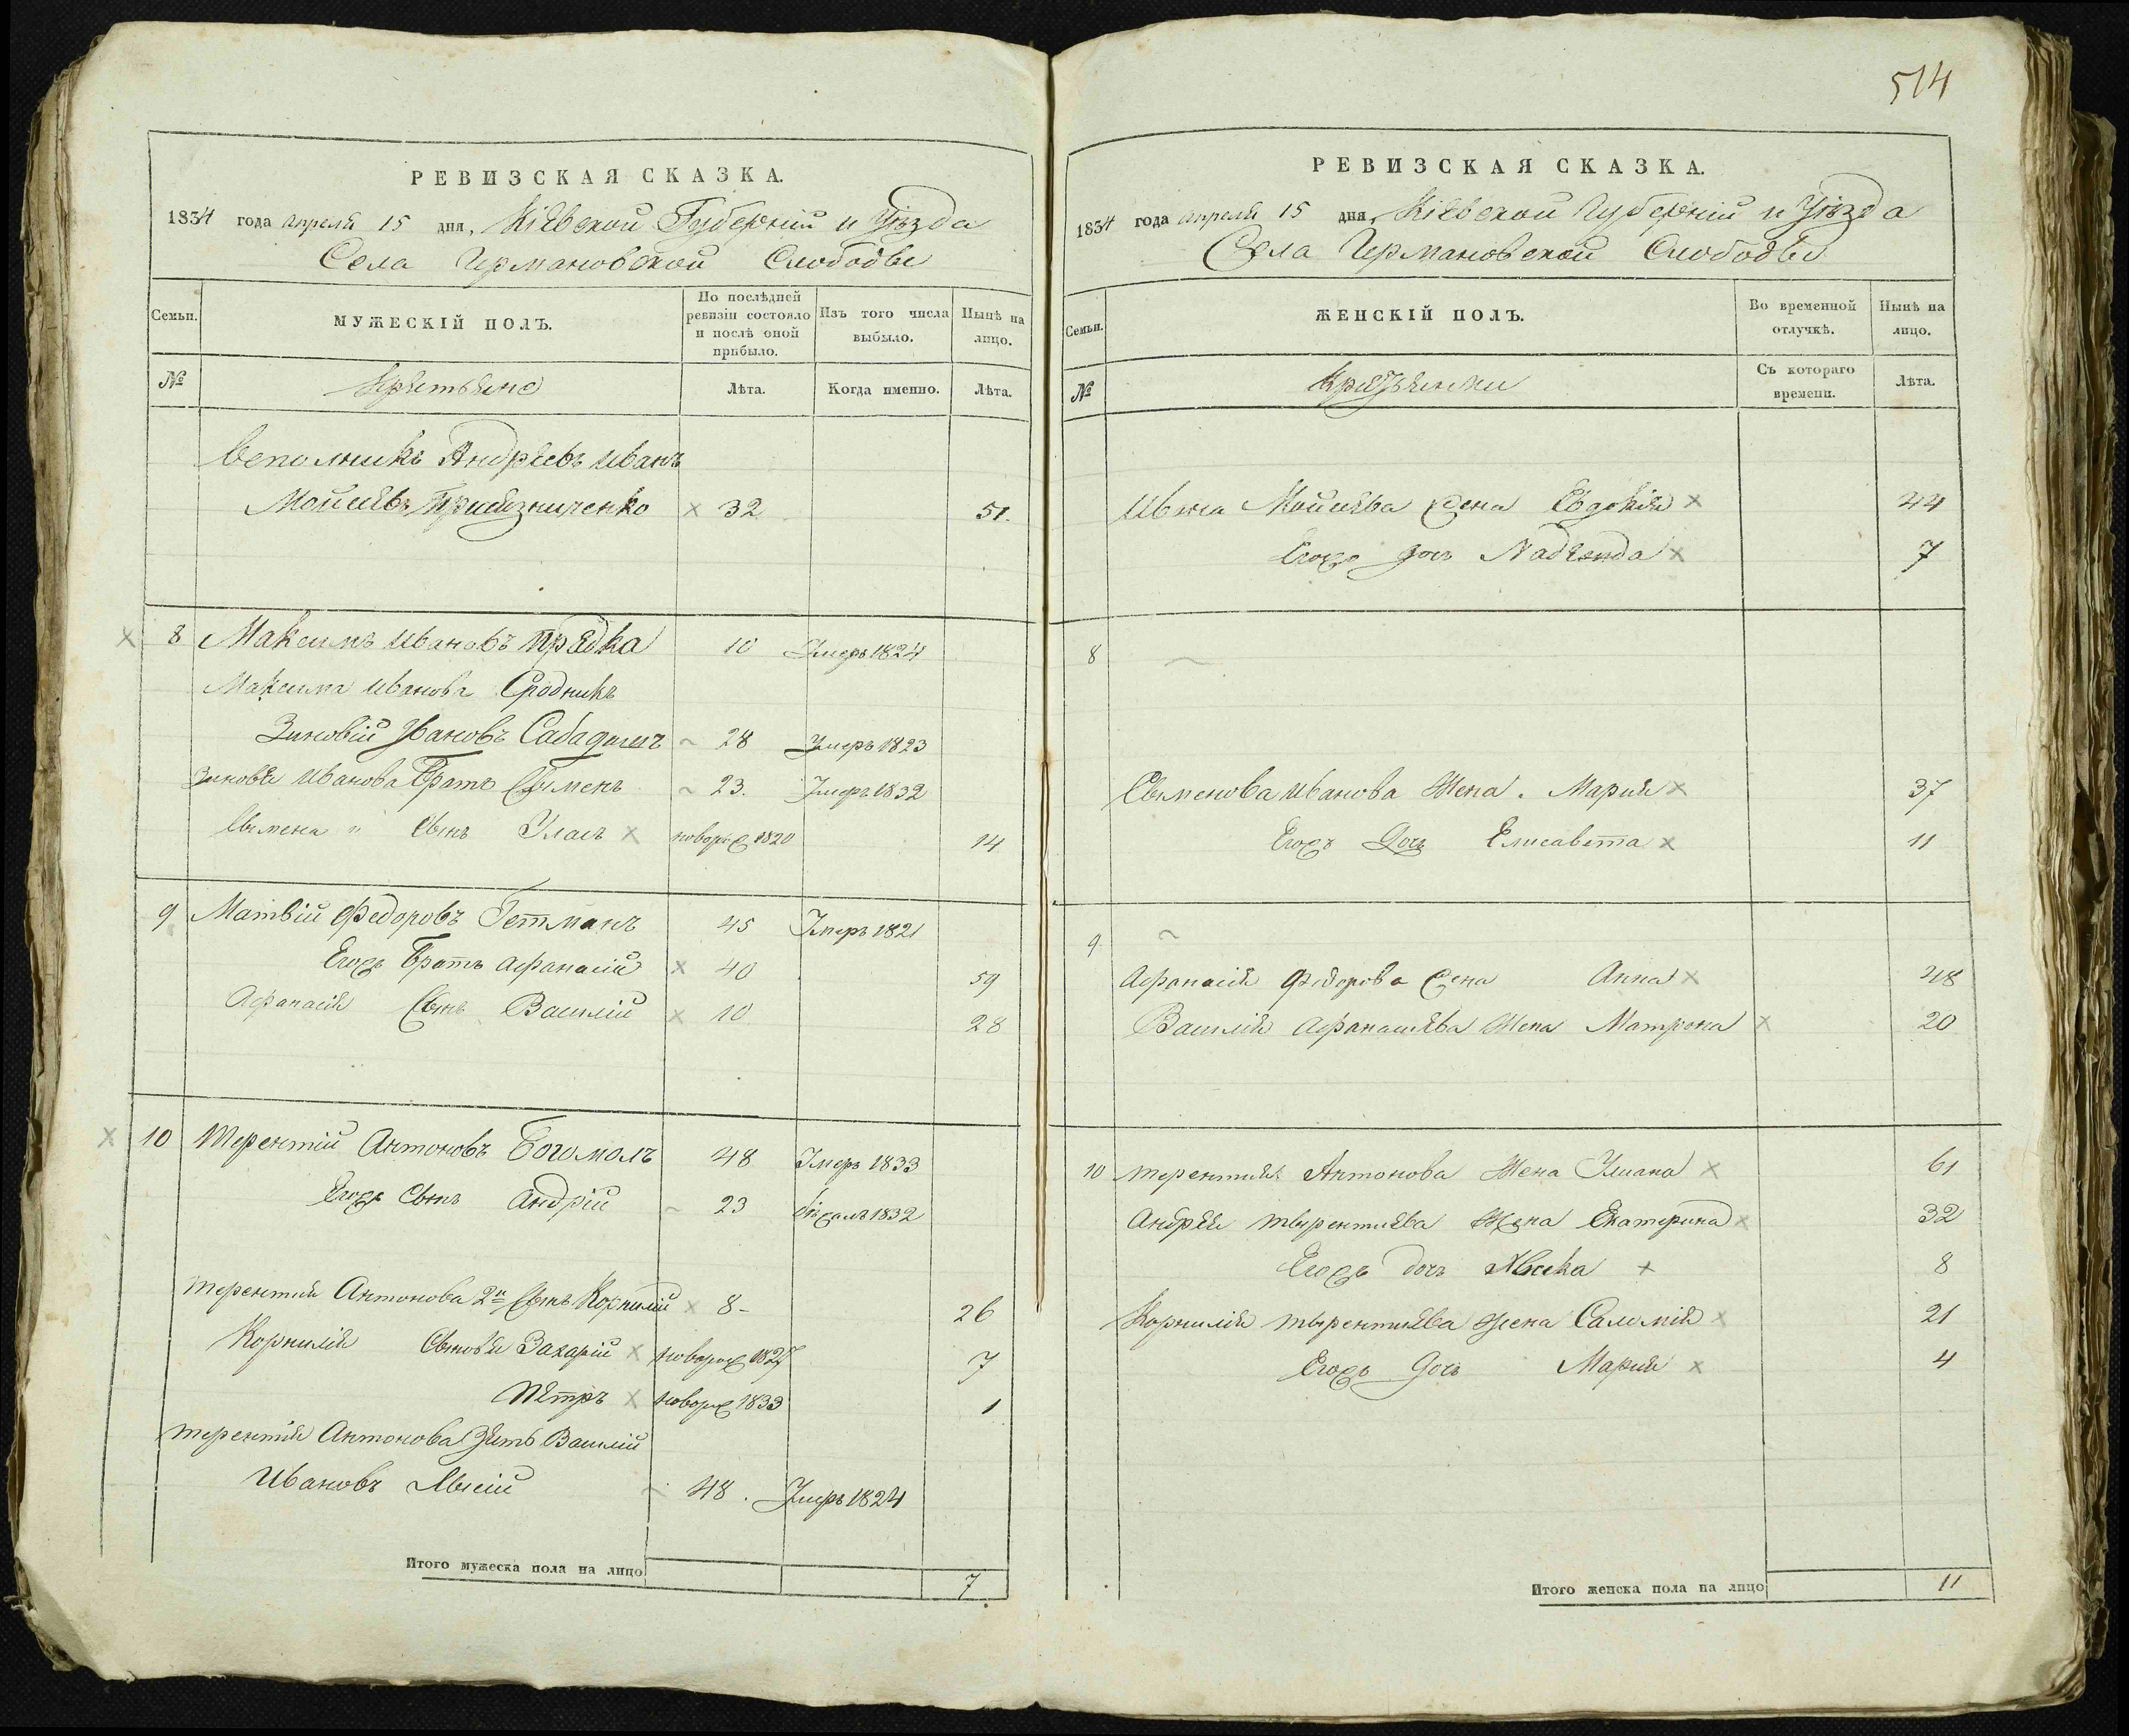 514
РЕВИЗСКАЯ СКАЗКА.
1834 года Апреля 15 дня, Кіевской Губерніи и Уѣзда
Села Германовской Слободы
Семьи.
МУЖЕСКІЙ ПОЛЪ.
По послѣдней ревизіи состояло и послѣ оной прибыло.
Изъ того числа выбыло.
Нынѣ на лицо.
№
Крестьяне
Лѣта.
Когда именно.
Лѣта.
Андреевъ Иванъ
Мойсѣевъ 32 51.
8 Максимъ Ивановъ Прядка 10 Умеръ 1824
Максима Иванова Сродникъ
Зиновій Ивановъ 28 Умеръ 1823
Зиновія Иванова Братъ Сыменъ 23. Умеръ 1832
Сымена " Сынъ Уласъ новорож 1820 14
9 Матвій Федоровъ Гетманъ 45 Умеръ 1821
Егожъ Братъ Афанасій 40 59
Афанасія Сынъ Василій 10 28
10 Терентій Антоновъ Богомолъ 48 Умеръ 1833
Егожъ Сынъ Андрій 23 бѣжалъ 1832
Терентія Антонова 2й Сынъ Корнилій 8- 26
Корнилія Сыновья Захарій новорож 1827 7
Петръ новорож 1833 1
Терентія Антонова Зять Василій
Ивановъ Лысій 48. Умеръ 1824
Итого мужеска пола на лицо
7
РЕВИЗСКАЯ СКАЗКА.
1834 года Апреля 15 дня, Кіевской Губерніи и Уѣзда
Села Германовской Слободы
Семьи.
ЖЕНСКІЙ ПОЛЪ.
Во временной отлучкѣ.
Нынѣ на лицо.
№
Крестьянки
Съ котораго времени.
Лѣта.
Ивана Мойсѣева жена Евдокія 44
Егожъ дочъ Надежда 7
8
Сыменова Иванова Жена. Марія 37
Егожъ Дочь Елисавета 11
9
Афанасія Федорова жена Анна 48
Василія Афанасіева Жена Матрона 20
10 Терентія Антонова Жена Уліана 61
Андрея Терентиева Жена Екатерина 32
Егожъ дочъ 8
Корнилія Терентиева жена Саломія 21
Егожъ Дочь Марія 4
Итого женска пола на лицо
11